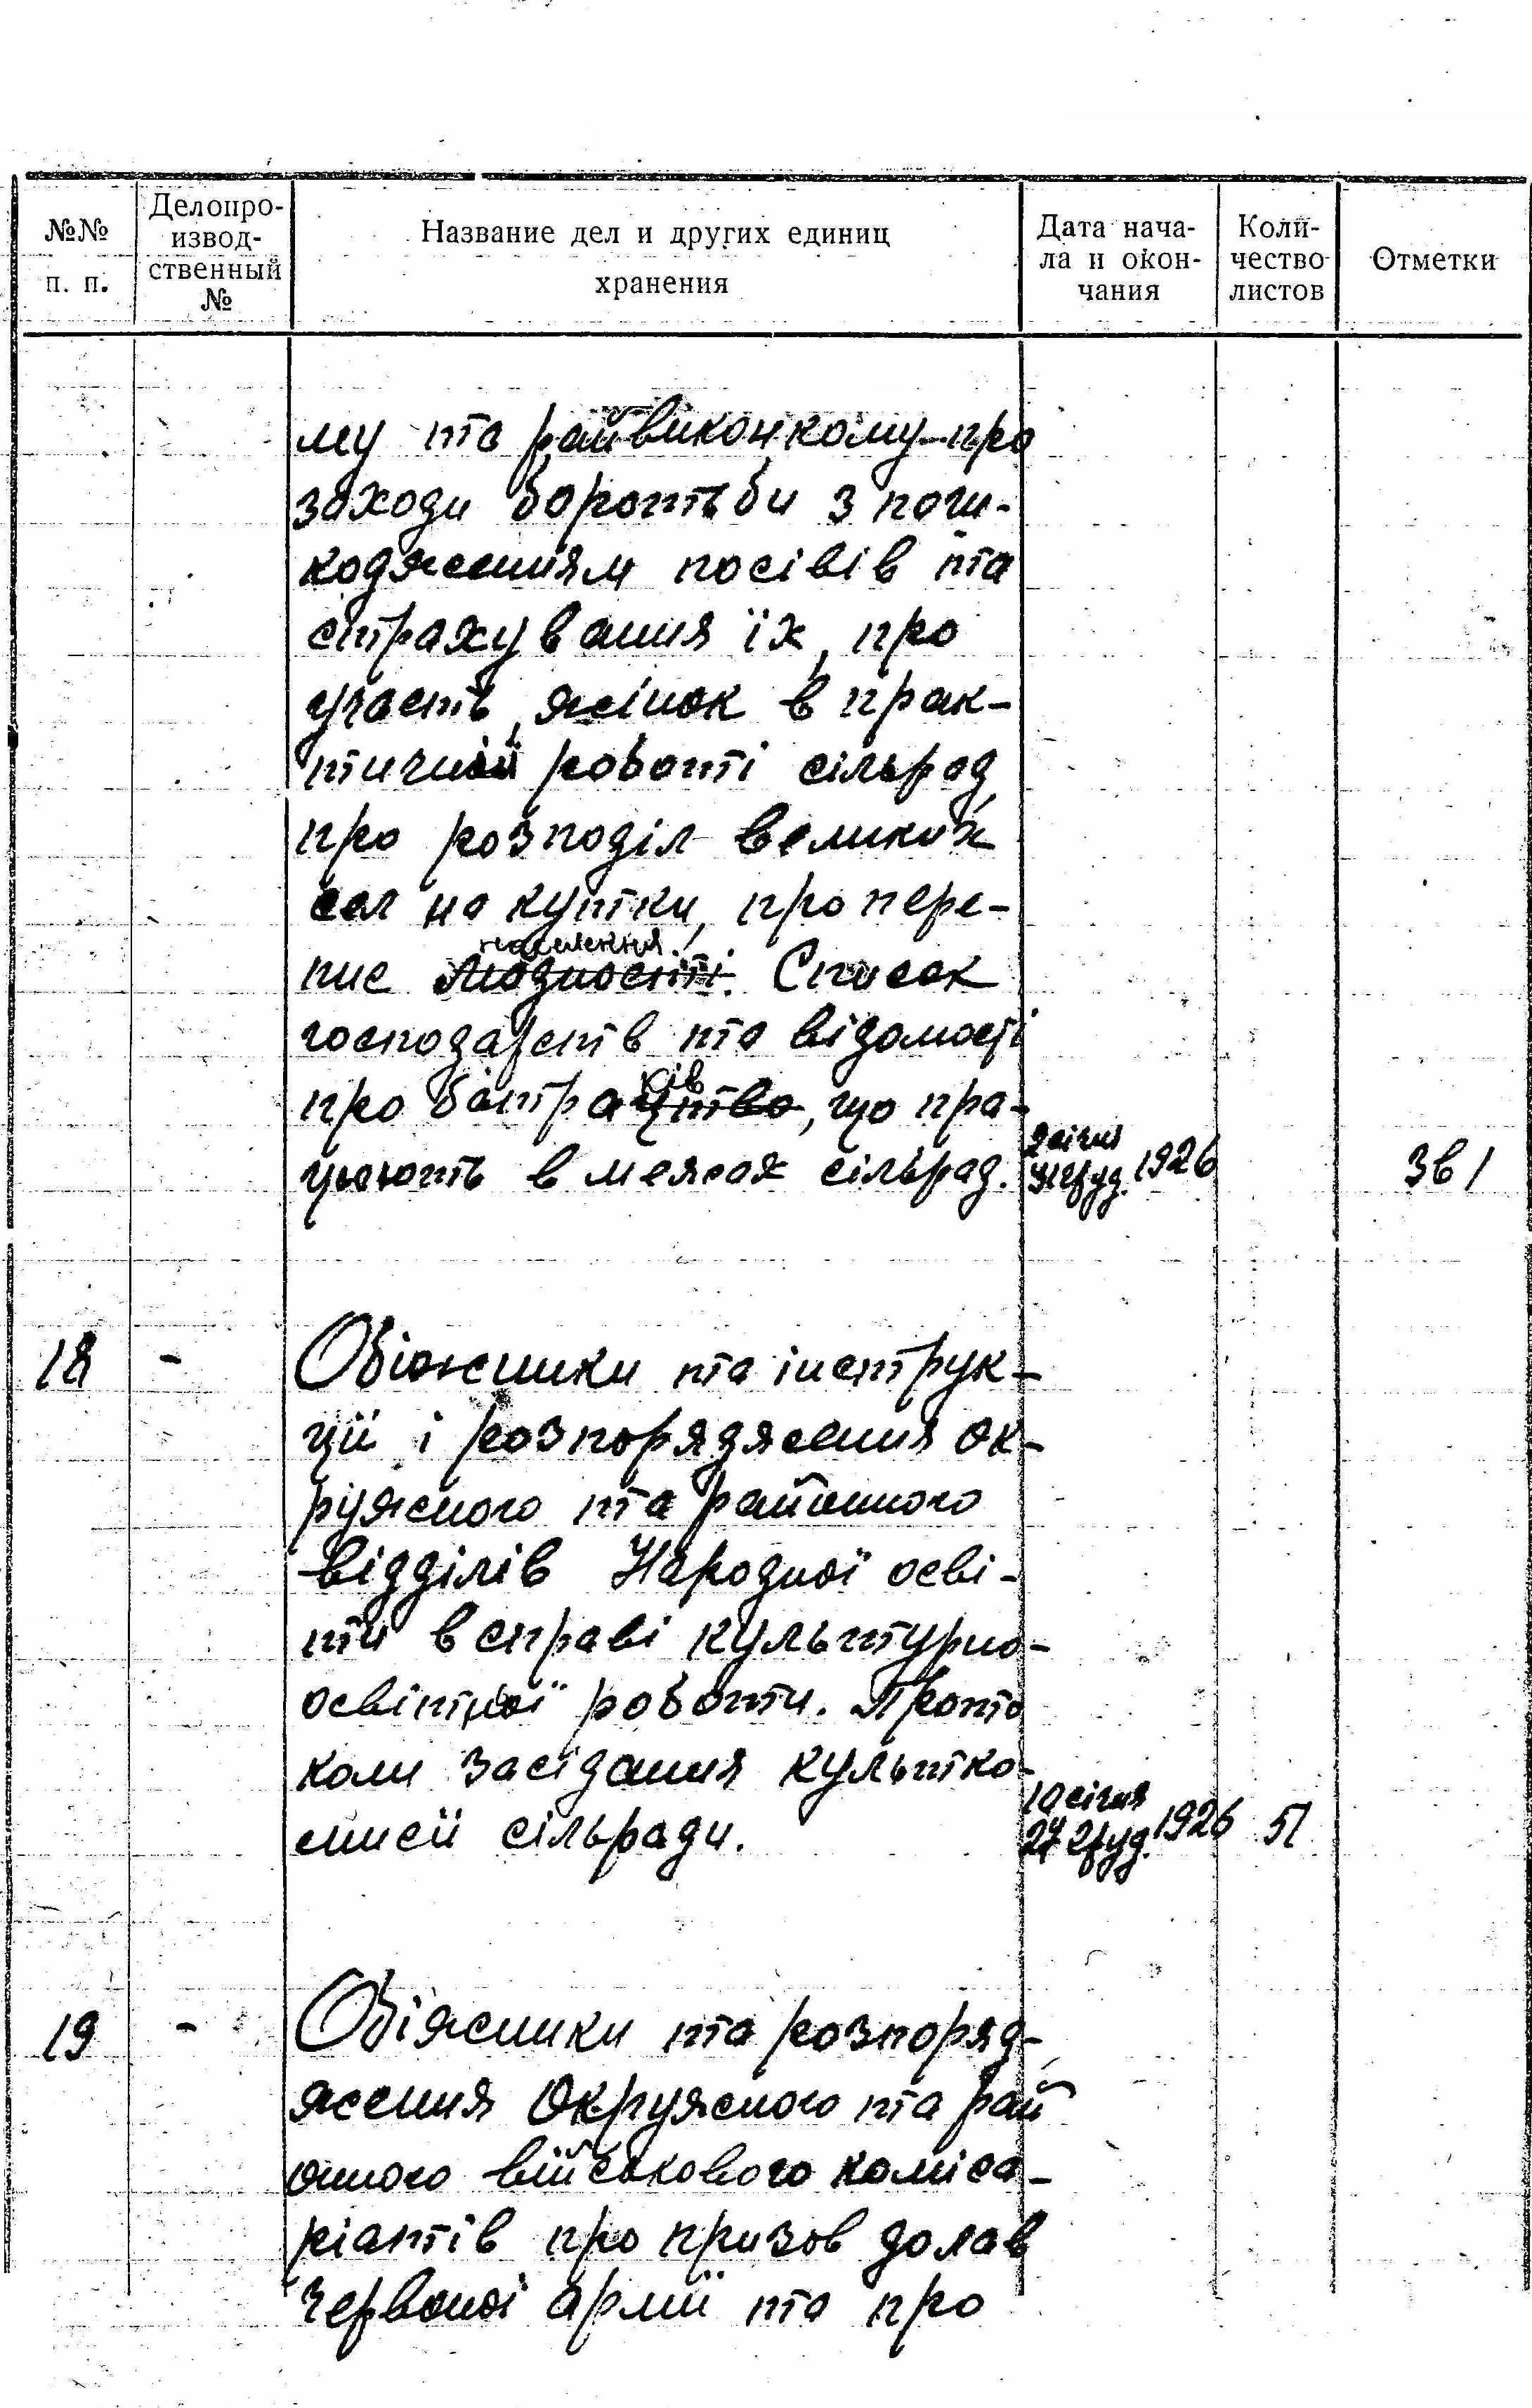 №№ п. п.
Делопро-
извод-
ственный
№
Название дел и других единиц
хранения
Дата нача-
ла и окон-
чания
Коли-
чество
листов
Отметки
му та райвиконкому про
заходи боротьби з пош-
кодженням посівів та
страхування їх, про
участь жінок в прак-
тичній роботі сільрад,
про розподіл великих
сел на кутки, про пере-
населення
пис людності. Список
господарств та відомості
ків
про батрацтво, що пра-
цюють в межах сільрад.
2 січня
31 груд. 1926
361
18 -
Обіжники та інструк-
ції і розпорядження ок-
ружного та районного
відділів Народної осві-
ти в справі культурно-
освітної роботи. Прото
коли засідання культко-
мисії сільради.
10 січня
27 груд. 1926
51
19 -
Обіжники та розпоряд-
ження Окружного та рай
онного військового коміса-
ріатів про призов до лав
Червоної армії та про